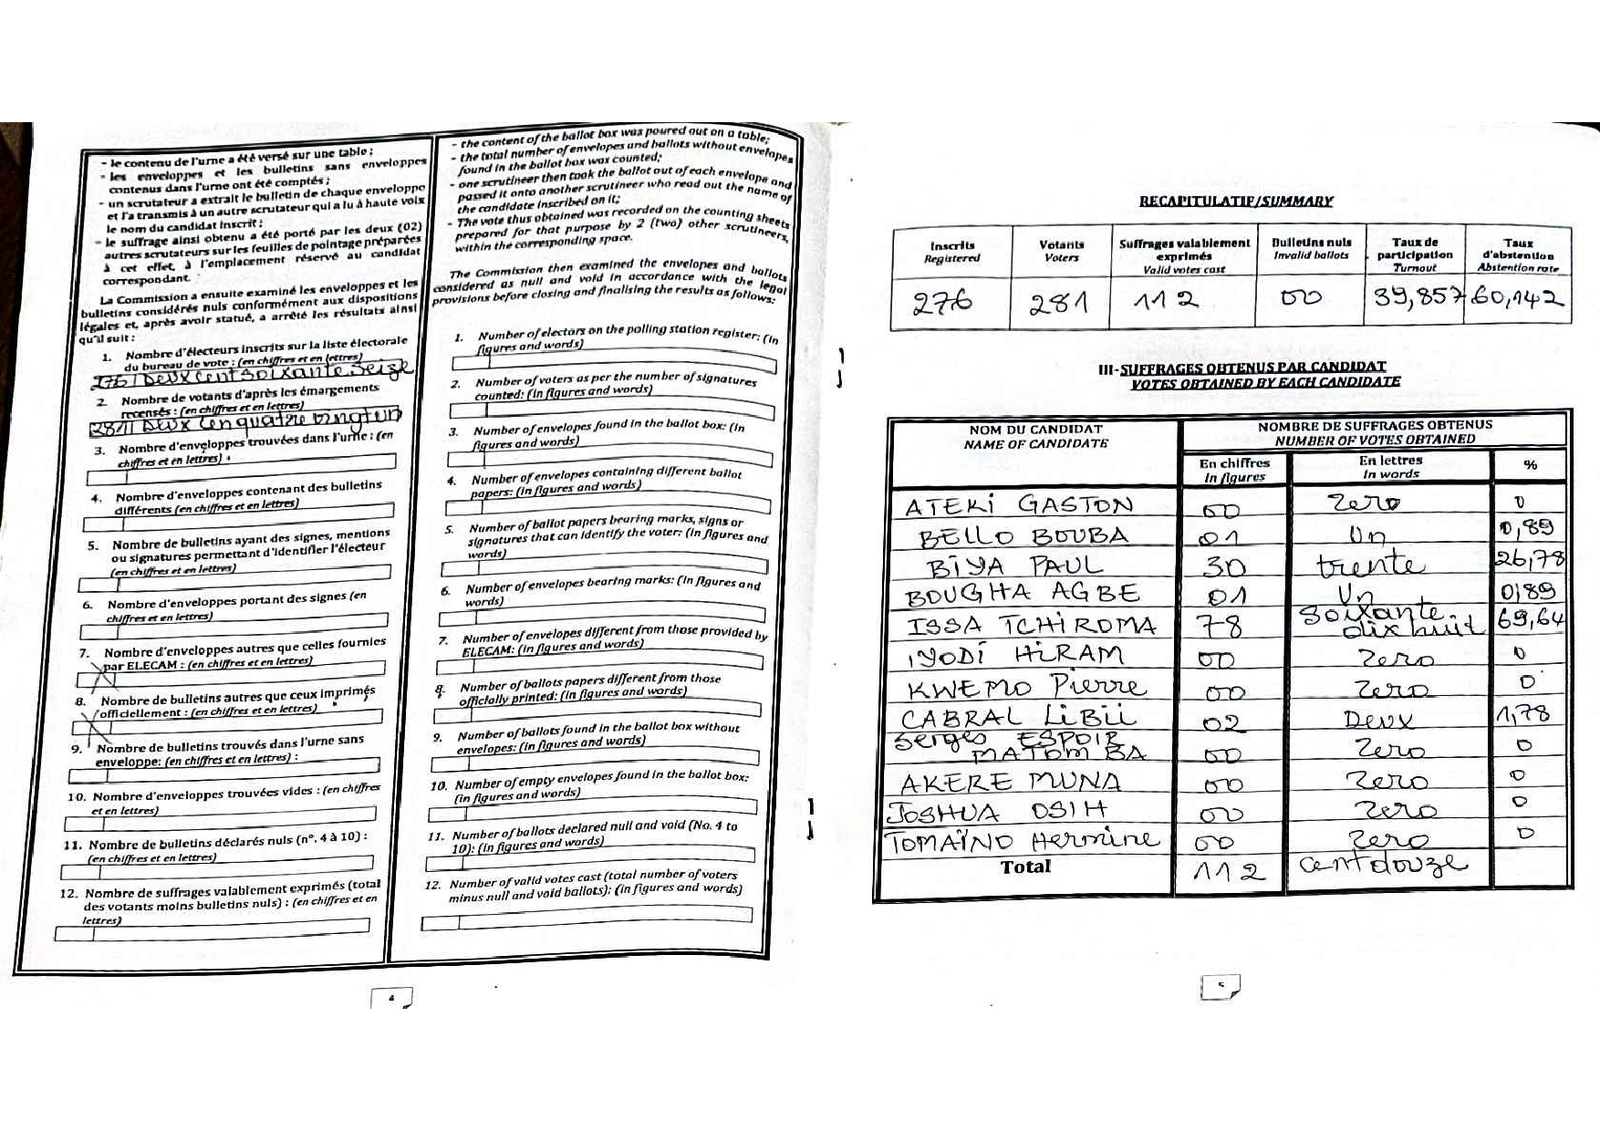 - le contenu de l'urne a été versé sur une table ;
- les enveloppes et les bulletins sans enveloppes
contenus dans l'urne ont été comptés ;
- un scrutateur a extrait le bulletin de chaque enveloppe
et l'a transmis à un autre scrutateur qui a lu à haute voix
le nom du candidat inscrit ;
- le suffrage ainsi obtenu a été porté par les deux (02)
autres scrutateurs sur les feuilles de pointage préparées
à cet effet, à l'emplacement réservé au candidat
correspondant.
La Commission a ensuite examiné les enveloppes et les
bulletins considérés nuls conformément aux dispositions
légales et, après avoir statué, a arrêté les résultats ainsi
qu'il suit :
1. Nombre d'électeurs inscrits sur la liste électorale
du bureau de vote : (en chiffres et en lettres)
276 Deux Cent Soixante Seize
2. Nombre de votants d'après les émargements
recensés : (en chiffres et en lettres)
281 Deux Cenquatre vingtun
3. Nombre d'enveloppes trouvées dans l'urne : (en
chiffres et en lettres)
4. Nombre d'enveloppes contenant des bulletins
différents (en chiffres et en lettres)
5. Nombre de bulletins ayant des signes, mentions
ou signatures permettant d'identifier l'électeur
(en chiffres et en lettres)
6. Nombre d'enveloppes portant des signes (en
chiffres et en lettres)
7. Nombre d'enveloppes autres que celles fournies
par ELECAM : (en chiffres et en lettres)
8. Nombre de bulletins autres que ceux imprimés
officiellement : (en chiffres et en lettres)
9. Nombre de bulletins trouvés dans l'urne sans
enveloppe: (en chiffres et en lettres) :
10. Nombre d'enveloppes trouvées vides : (en chiffres
et en lettres)
11. Nombre de bulletins déclarés nuls (n°. 4 à 10) :
(en chiffres et en lettres)
12. Nombre de suffrages valablement exprimés (total
des votants moins bulletins nuls) : (en chiffres et en
lettres)
- the content of the ballot box was poured out on a table;
- the total number of envelopes and ballots without envelopes
found in the ballot box was counted;
- one scrutineer then took the ballot out of each envelope and
passed it onto another scrutineer who read out the name of
the candidate inscribed on it;
- The vote thus obtained was recorded on the counting sheets
prepared for that purpose by 2 (two) other scrutineers,
within the corresponding space.
The Commission then examined the envelopes and ballots
considered as null and void in accordance with the legal
provisions before closing and finalising the results as follows:
1. Number of electors on the polling station register: (in
figures and words)
2. Number of voters as per the number of signatures
counted: (in figures and words)
3. Number of envelopes found in the ballot box: (in
figures and words)
4. Number of envelopes containing different ballot
papers: (in figures and words)
5. Number of ballot papers bearing marks, signs or
signatures that can identify the voter: (in figures and
words)
6. Number of envelopes bearing marks: (in figures and
words)
7. Number of envelopes different from those provided by
ELECAM: (in figures and words)
8. Number of ballots papers different from those
officially printed: (in figures and words)
9. Number of ballots found in the ballot box without
envelopes: (in figures and words)
10. Number of empty envelopes found in the ballot box:
(in figures and words)
11. Number of ballots declared null and void (No. 4 to
10): (in figures and words)
12. Number of valid votes cast (total number of voters
minus null and void ballots): (in figures and words)
4
RECAPITULATIF/SUMMARY
Inscrits Registered | Votants Voters | Suffrages valablement exprimés Valid votes cast | Bulletins nuls Invalid ballots | Taux de participation Turnout | Taux d'abstention Abstention rate
276 281 112 00 39,857 60,142
III-SUFFRAGES OBTENUS PAR CANDIDAT
VOTES OBTAINED BY EACH CANDIDATE
NOM DU CANDIDAT NOMBRE DE SUFFRAGES OBTENUS
NAME OF CANDIDATE NUMBER OF VOTES OBTAINED
En chiffres En lettres %
In figures In words
ATEKI GASTON 00 Zero 0
BELLO BOUBA 01 Un 0,89
BIYA PAUL 30 trente 26,78
BOUGHA AGBE 01 Un 0,89
ISSA TCHIROMA 78 Soixante dix huit 69,64
IYODI HIRAM 00 Zero 0
KWEMO Pierre 00 Zero 0
CABRAL LiBii 02 Deux 1,78
Serges ESPOIR MATOMBA 00 Zero 0
AKERE MUNA 00 Zero 0
JOSHUA OSIH 00 Zero 0
TOMAÏNO Hermine 00 Zero 0
Total 112 Centdouze
5